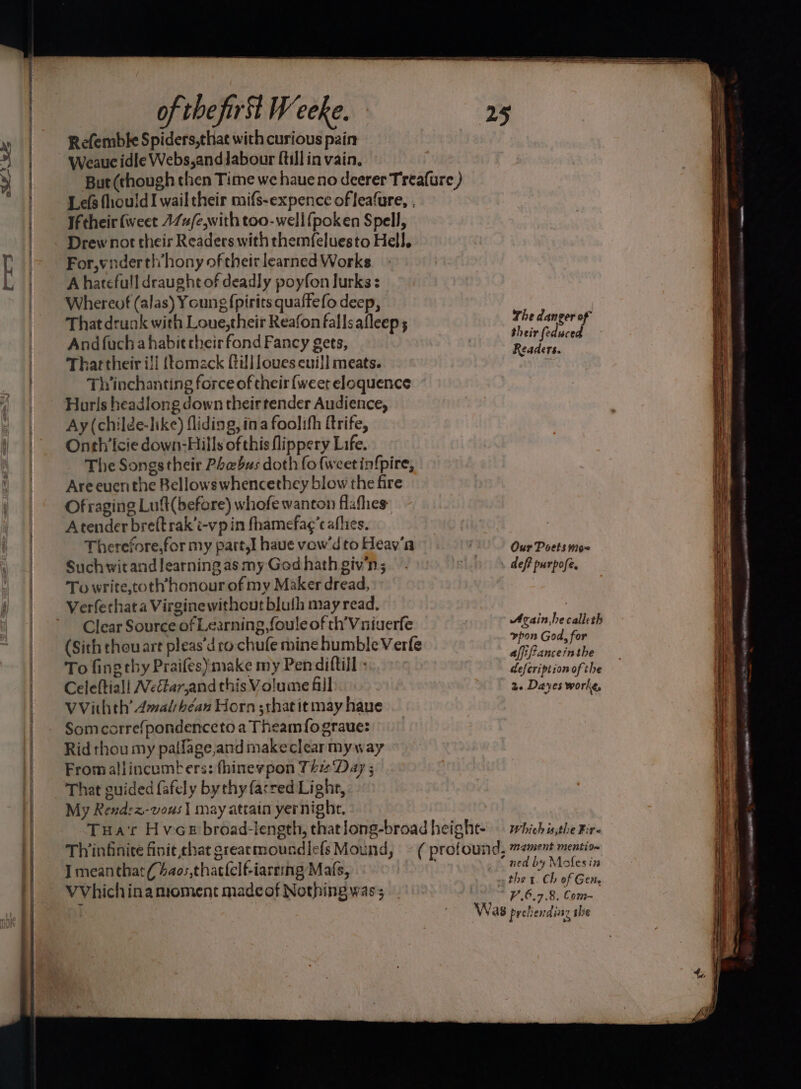 of the firſt Weeke. 25
Reſemble Spiders, that with curious pain
Weaue idle Webs, and labour ſtill in vain.
But (though then Time we haue no deerer Treaſure)
Leſs ſhould I wail their miſs-expence of leaſure,
If their ſweet Muſe, with too-well ſpoken Spell,
Drew not their Readers with themſelues to Hell.
For, vnder th'hony of their learned Works
A hatefull draught of deadly poyſon lurks:
Whereof (alas) Young ſpirits quaffe ſo deep,
That drunk with Loue, their Reaſon falls aſleep;
And ſuch a habit their fond Fancy gets,
That their ill ſtomack ſtill loues euill meats.
The danger of
their ſeduced
Readers.
Th'inchanting force of their ſweet eloquence
Hurls headlong down their tender Audience,
Ay (childe-like) ſliding, in a fooliſh ſtrife,
On th'Icie down-Hills of this ſlippery Life.
The Songs their Phœbus doth ſo ſweet inſpire,
Are euen the Bellows whence they blow the fire
Of raging Luſt (before) whoſe wanton flaſhes
A tender breſt rak't-vp in ſhamefac't aſhes.
Therefore, for my part, I haue vow'd to Heav'n
Such wit and learning as my God hath giv'n;
To write, to th'honour of my Maker dread,
Verſe that a Virgine without bluſh may read.
Our Poets mo-
deſt purpoſe.
Clear Source of Learning, ſoule of th'Vniuerſe
(Sith thou art pleas'd to chuſe mine humble Verſe
To ſing thy Praiſes) make my Pen diſtill
Celeſtiall Nectar, and this Volume fill
VVith th'Amalthéan Horn; that it may haue
Som correſpondence to a Theam ſo graue:
Rid thou my paſſage, and make clear my way
From all incumbers: ſhine vpon This Day;
That guided ſafely by thy ſacred Light,
My Rendez-vous I may attain yer night.
Again, he calleth
vpon God, for
aſſiſtance in the
deſcription of the
2. Dayes worke,
THAT HVGE broad-length, that long-broad height-
Th'infinite finit, that great moundleſs Mound, (profound,
I mean that Chaos, that ſelf-iarring Maſs,
VVhich in a moment made of Nothing was;
Which is, the Fir-
mament mentio-
ned by Moſes in
the 1. Ch of Gen.
V.6.7.8. Com-
prehending the
Was